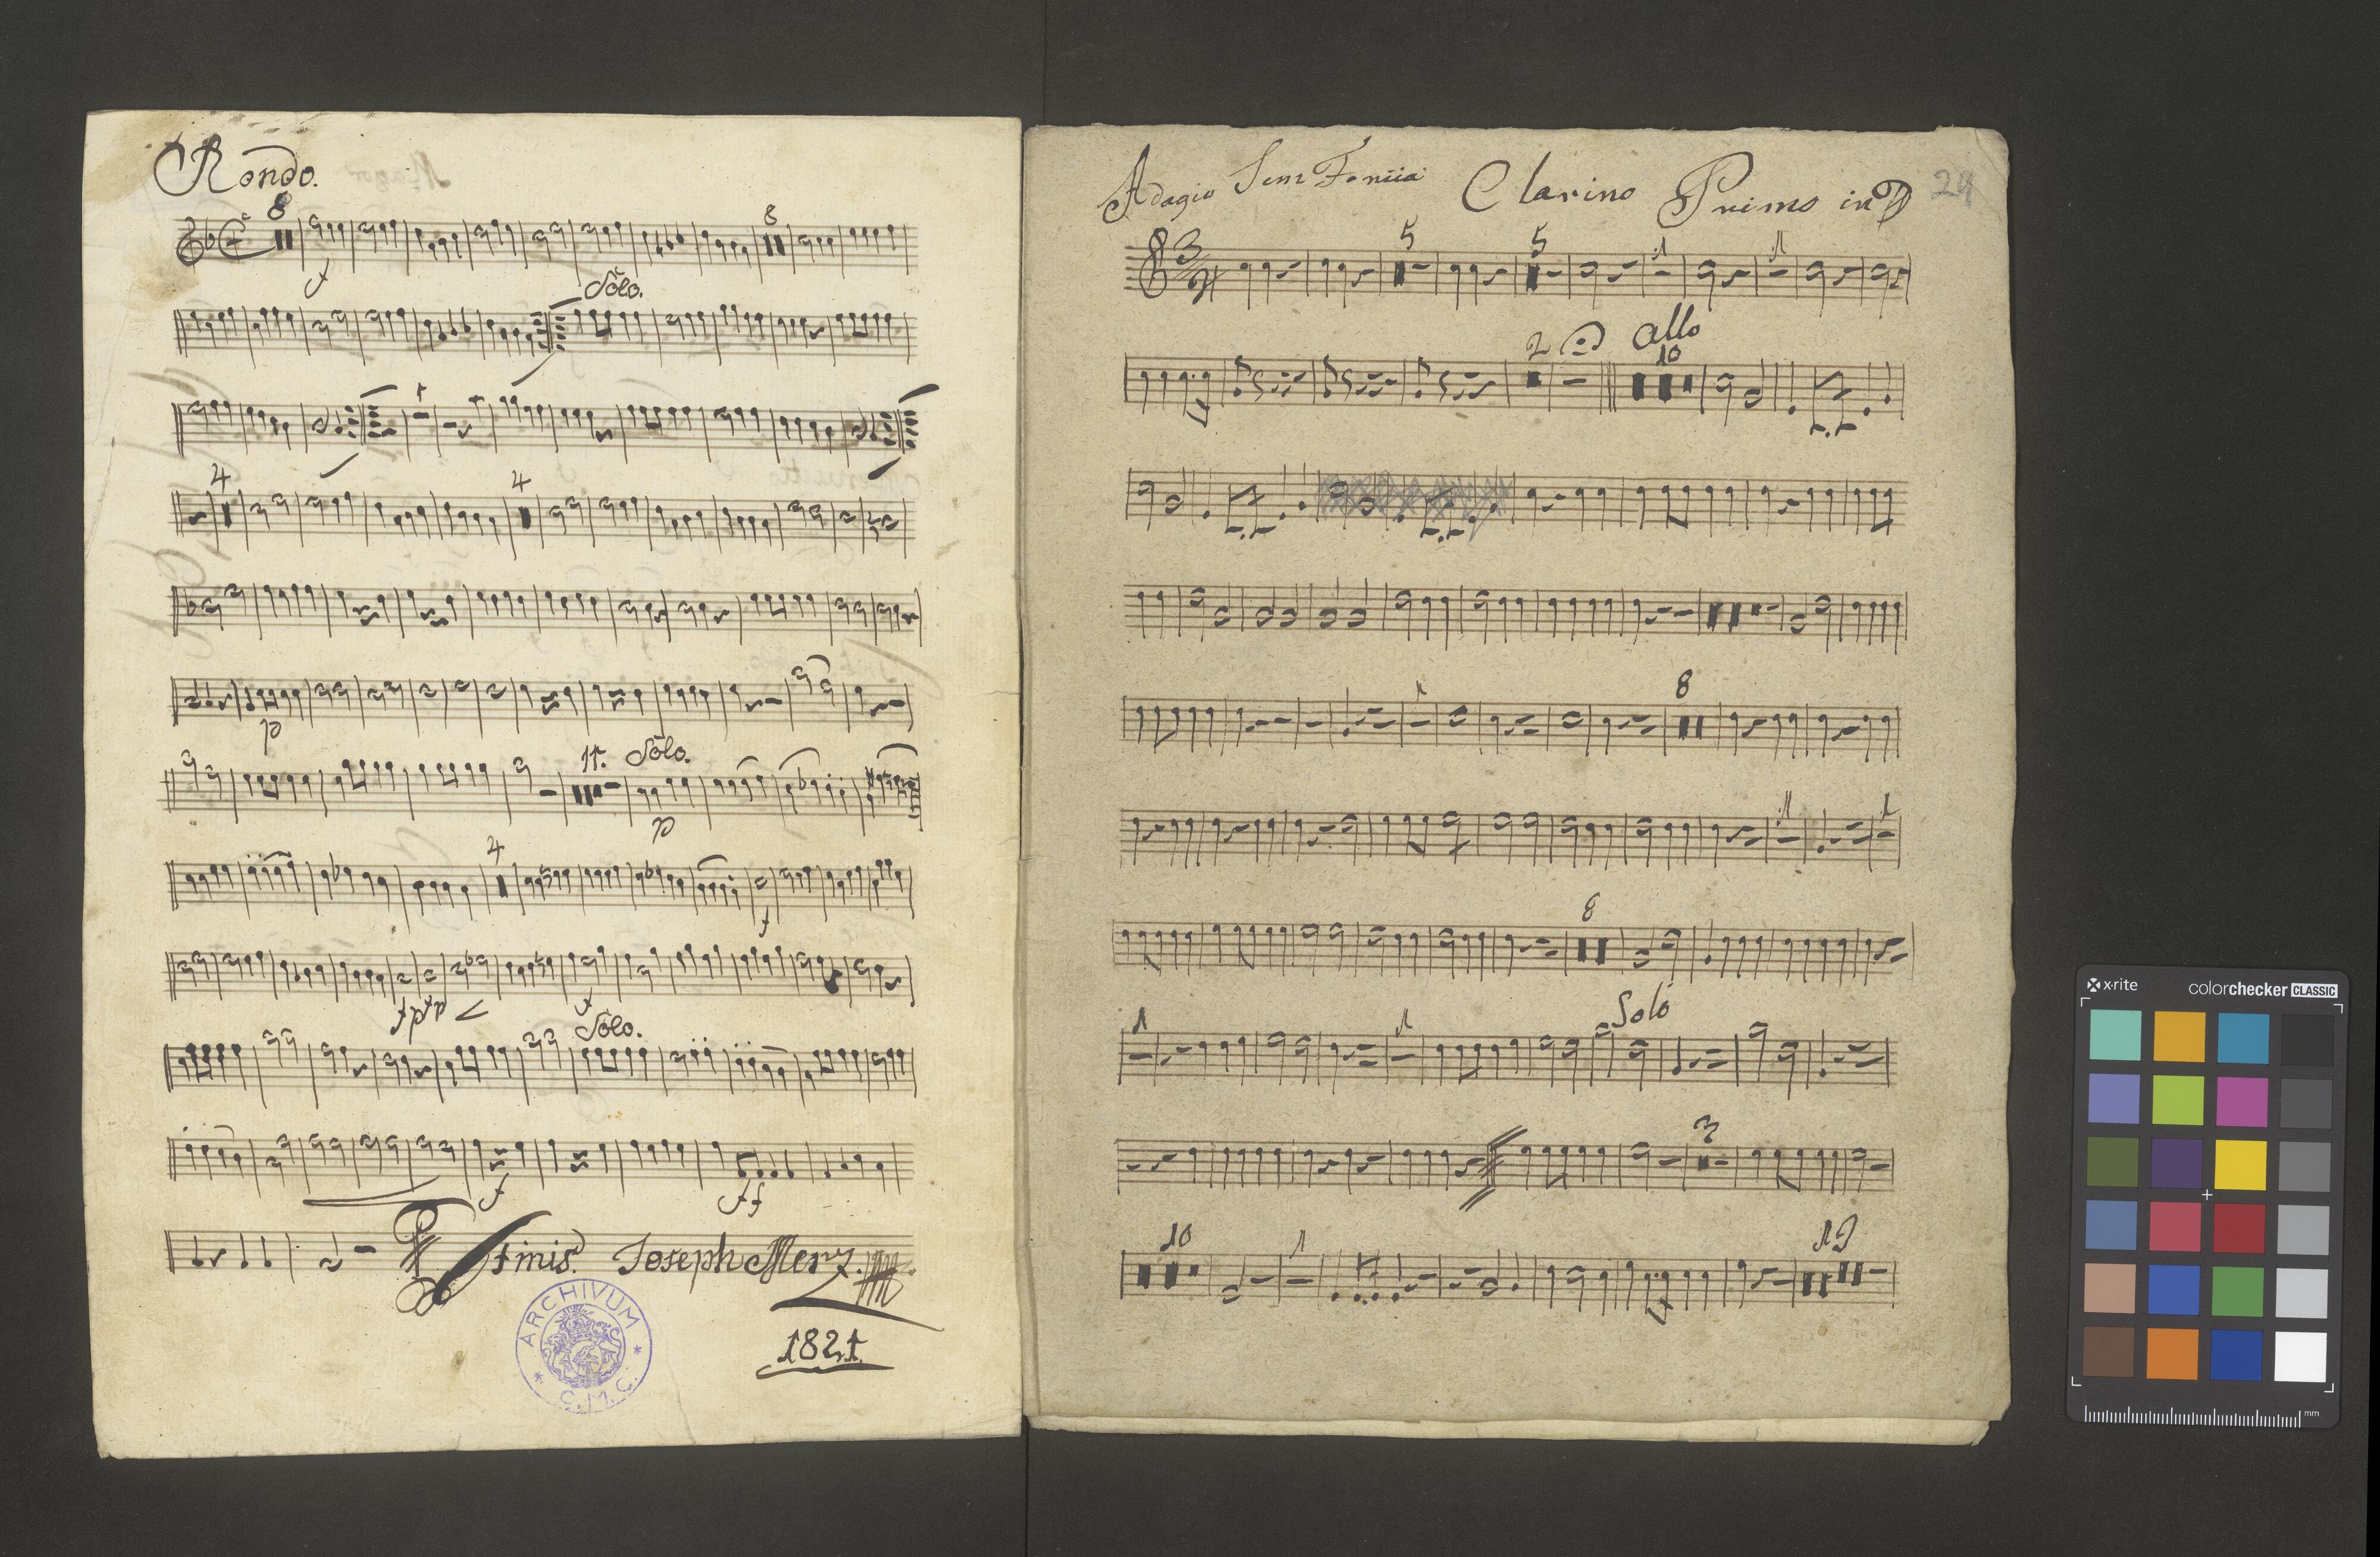 Rondo.
8
8
f
Solo.
1
4
4
p
11. Solo.
p
4
f
f p f p
f
Solo.
f
ff
Finis. Joseph Merz.
1821.
ARCHIVUM
C.M.C.
Adagio Sem Foniia Clarino Primo in D
24
3
4
5
5
1
1
2
allo
10
8
1
1
1
8
1
1
Solo
3
10
1
19
x-rite
colorchecker CLASSIC
mm